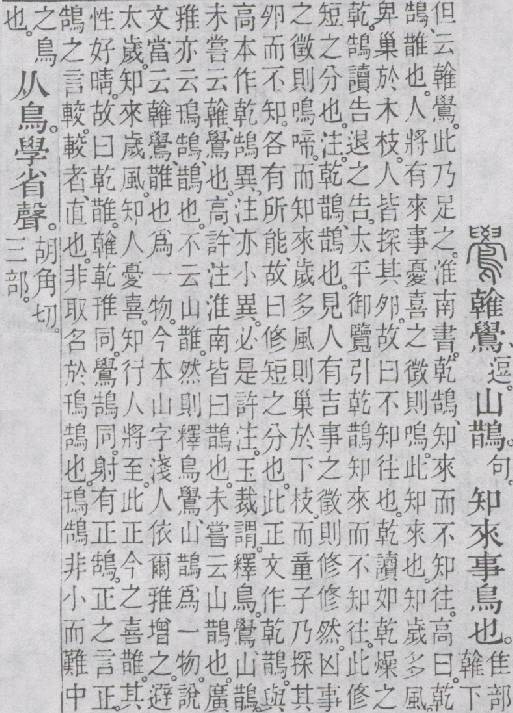 鷽雗鷽逗。山鵲句。知來事鳥也。隹部雗下
但云雗鷽。此乃足之。淮南書。乾鵠、知來而不知往。高曰。乾
鵠、鵲也。人將有來事憂喜之徵則鳴。此知來也。知歲多風。
卑巢於木枝。人皆探其卵。故曰不知往也。乾讀如乾燥之
乾。鵠讀告退之告。太平御覽引乾鵲知來而不知往。此修
短之分也。注。乾鵲、鵲也。見人有吉事之徵則修修然。凶事
之徵則鳴啼。而知來歲多風則巢於下枝。而童子乃探其
卵而不知。各有所能。故曰修短之分也。此正文作乾鵲。與
高本作乾鵠異。注亦小異。必是許注。玉裁謂。釋鳥鷽、山鵲。
未嘗云雗鷽也。高、許注淮南皆曰鵲也。未嘗云山鵲也。廣
雅亦云鳱鵠、鵲也。不云山鵲。然則釋鳥鷽、山鵲爲一物。說
文當云雗鷽、鵲也。爲一物。今本山字淺人依爾雅增之。避
太歲。知來歲風。知人憂喜。知行人將至。此正今之喜鵲。其
性好晴。故曰乾鵲。雗乾鳱同。鷽鵠同。射有正鵠。正之言正。
鵠之言較。較者直也。非取名於鳱鵠也。鳱鵠非小而難中
之鳥也。从鳥。學省聲。胡角切。三部。